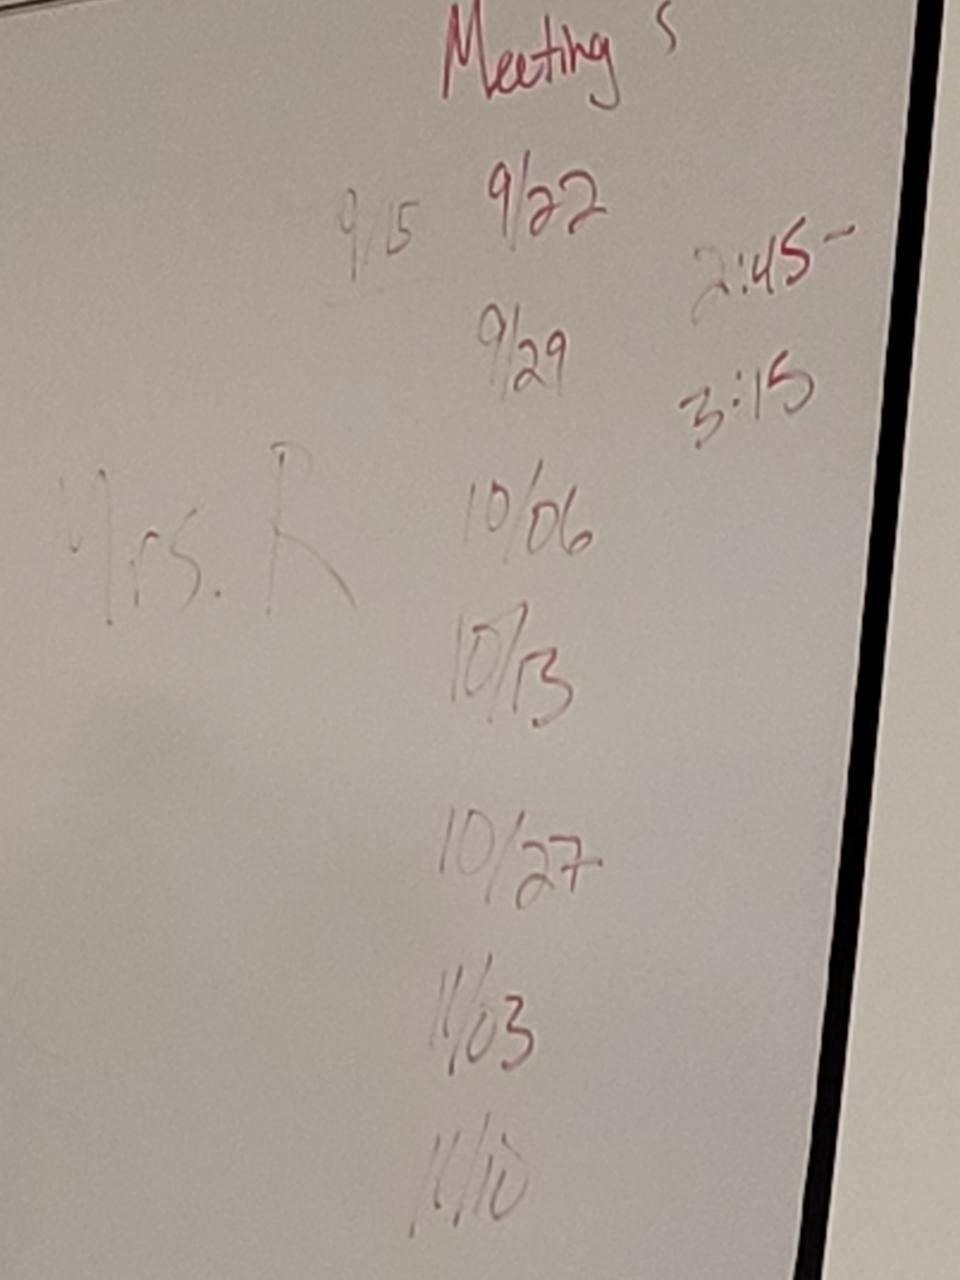 Meetings
9/15 9/22
2:45-
9/29
3:15
Mrs. R
10/06
10/13
10/27
11/03
11/10